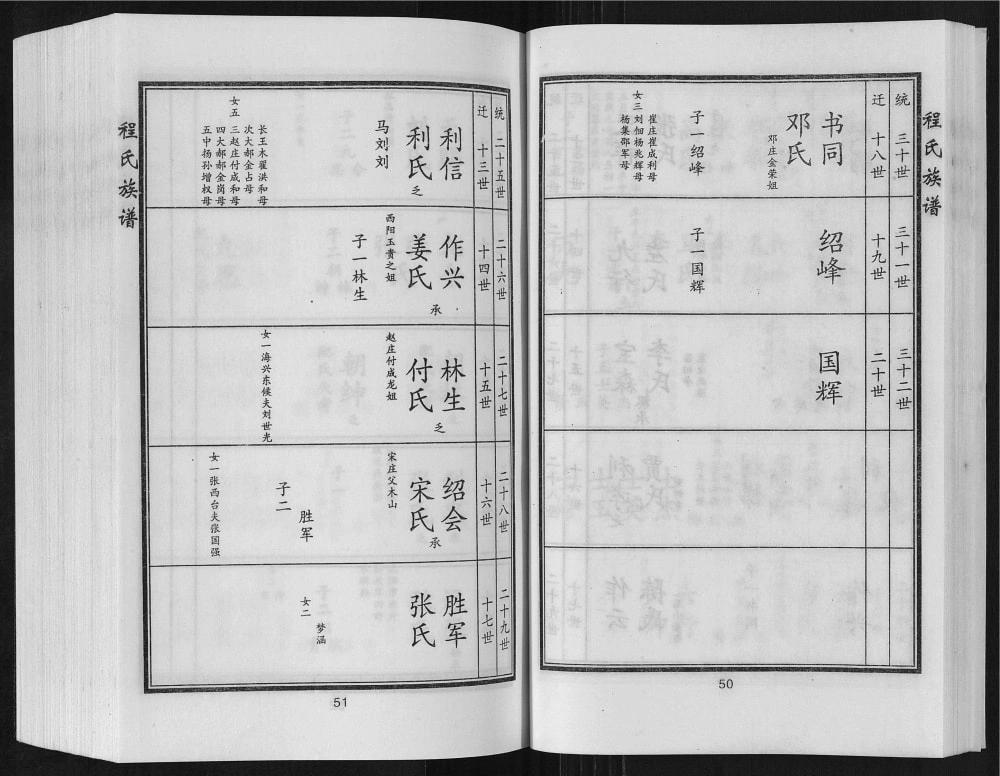 程氏族谱
统 三十世
迁 十八世
书同
邓氏
邓庄金荣姐
子一绍峰
女三
崔庄崔成利母
刘佃杨兆辉母
杨集邵军母
三十一世
十九世
绍峰
子一国辉
三十二世
二十世
国辉
50
统 二十五世
迁 十三世
利信
利氏乏
马刘刘
女五
长王木翟洪和母
次大郝金占母
三赵庄付成和母
四大郝郝金岗母
五中扬孙增权母
二十六世
十四世
作兴
姜氏承
西阳玉贵之姐
子一林生
二十七世
十五世
林生
付氏乏
赵庄付成龙姐
女一海兴东候夫刘世光
二十八世
十六世
绍会
宋氏承
宋庄父木山
子二
胜军
女一张西台夫张国强
二十九世
十七世
胜军
张氏
女二
梦涵
程氏族谱
51